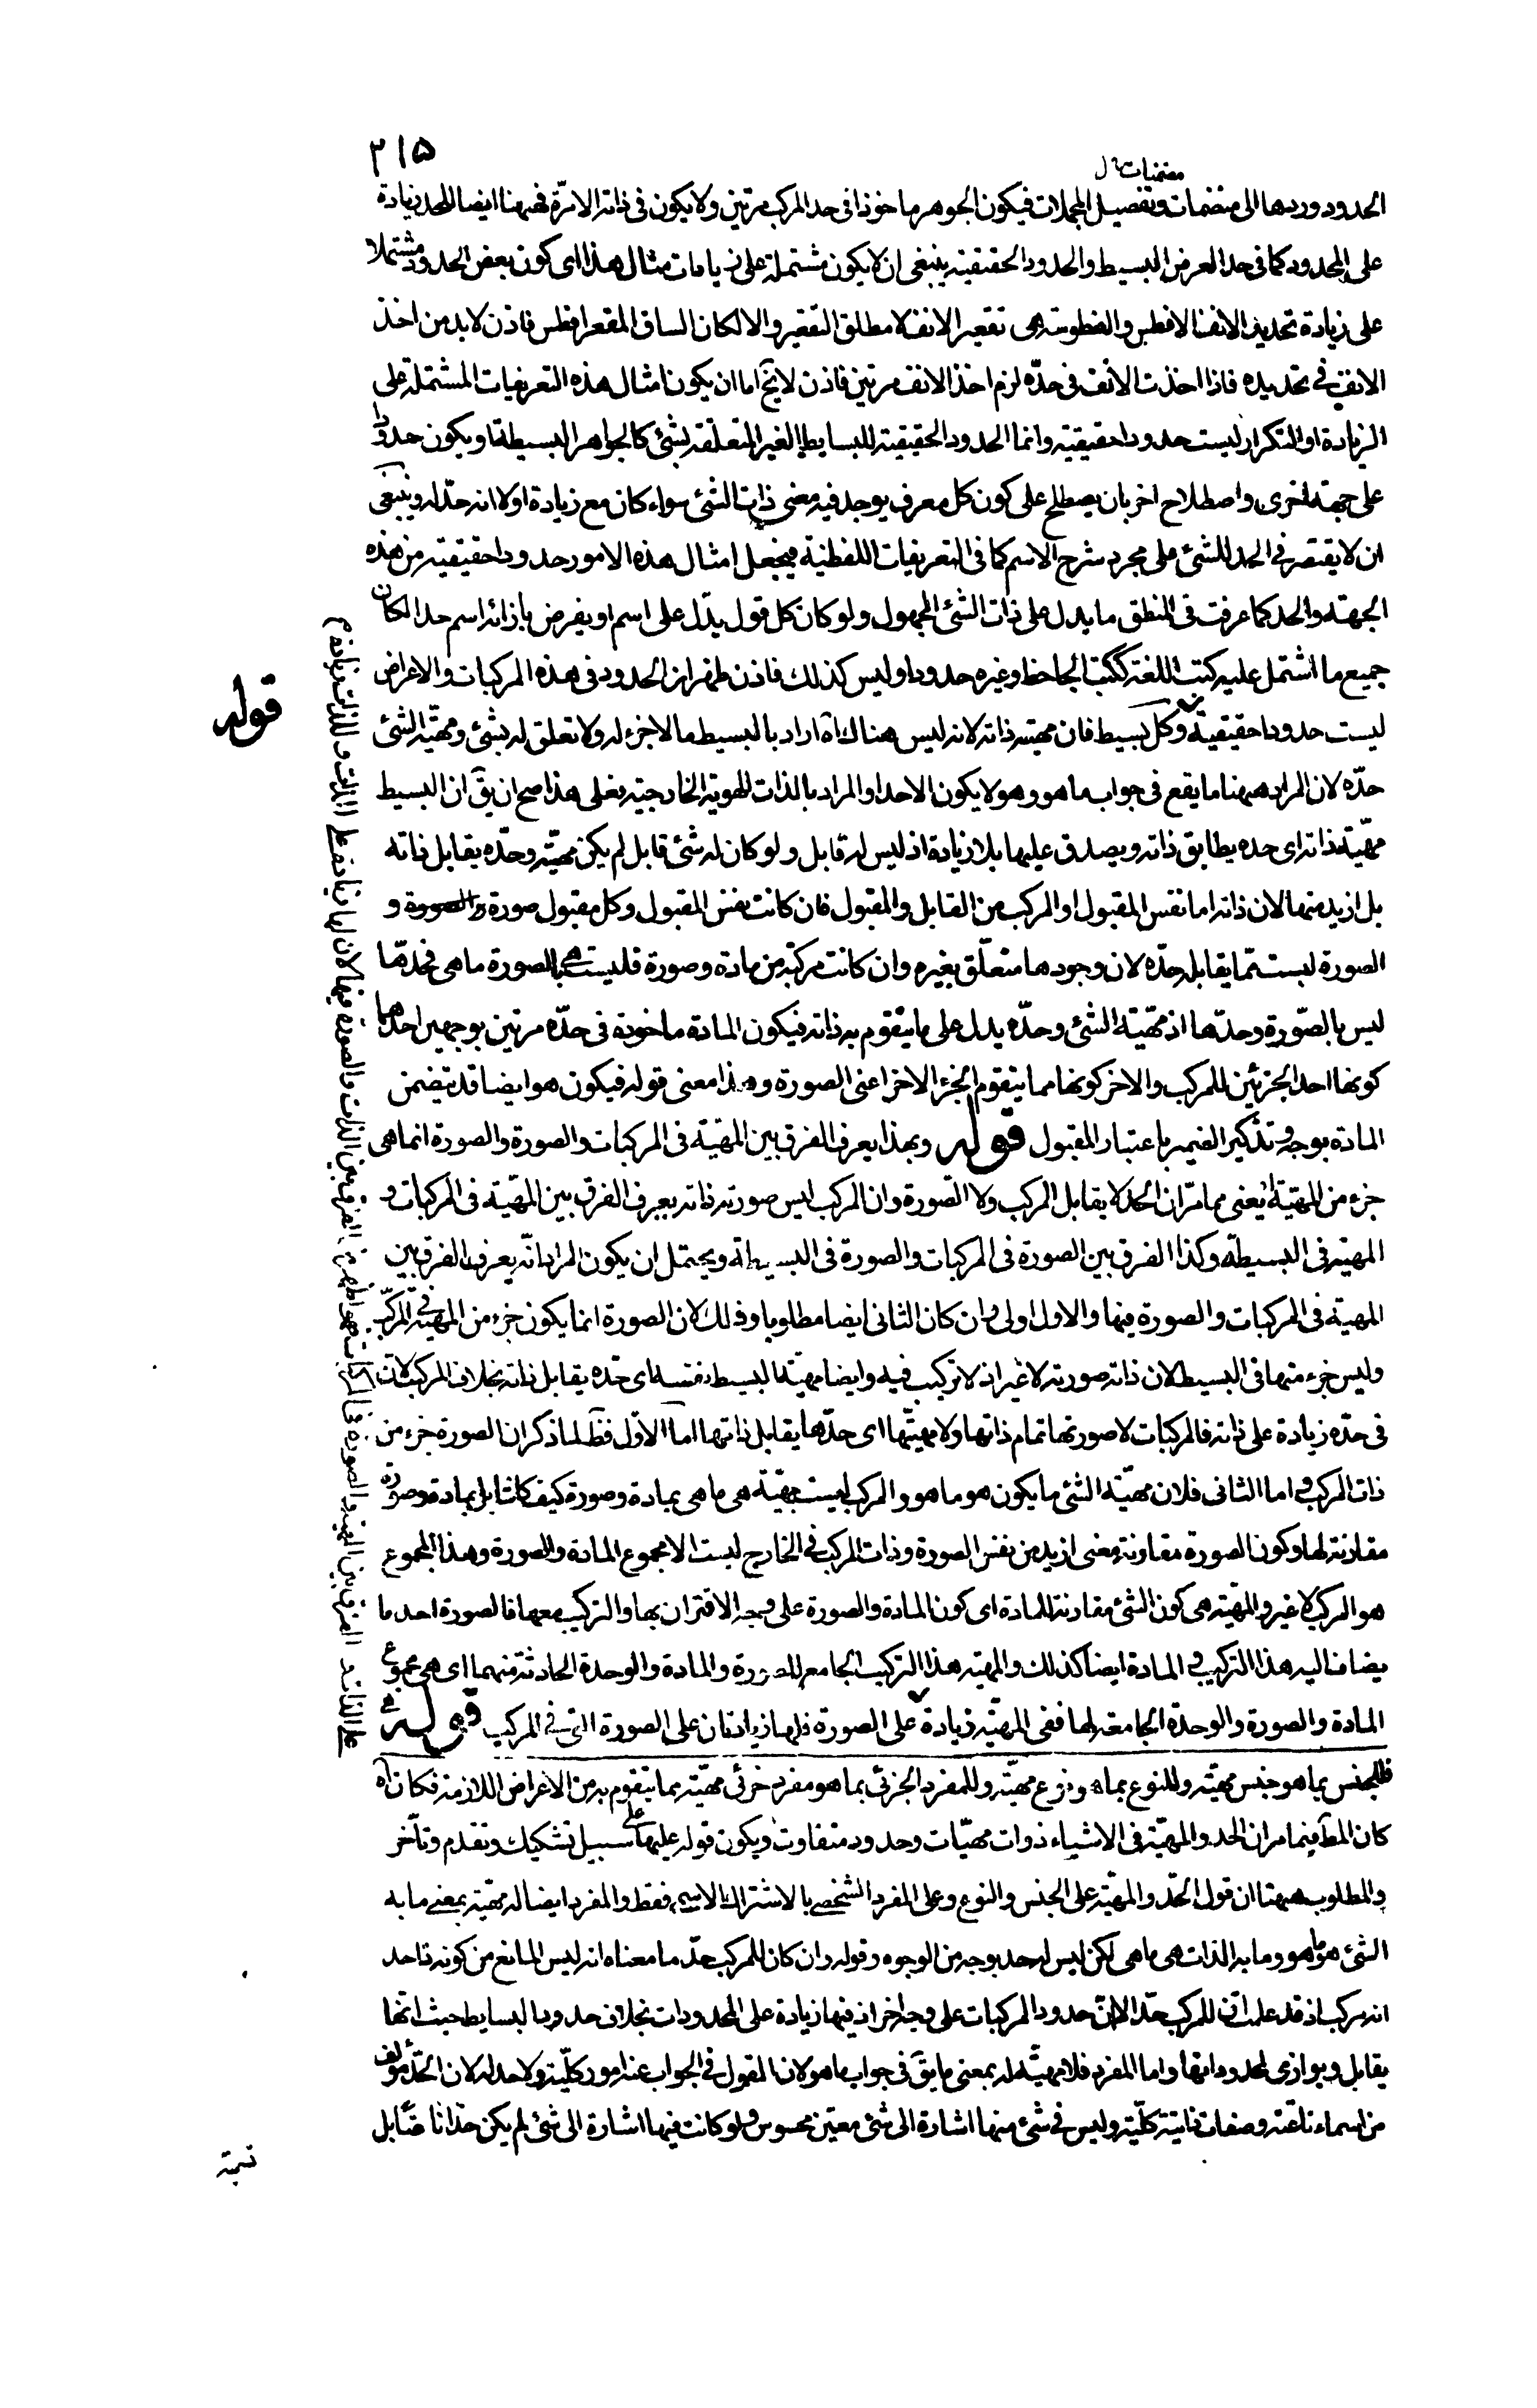 ٢١٥
مضمنات ل
الحدود وردها الى متضمات وتفصيل المجملات فيكون الجوهر ماخوذا فى حد المركب مرتين ولا يكون فى ذاته الا مرّة فههنا ايضا للحد زيادة
على المحدود كما فى حد العرض البسيط والحدود الحقيقية ينبغى ان لا يكون مشتملة على زيادات مثال هذا اى كون بعض الحدود مشتملا
على زيادة تحديد الانف الافطس والفطوسة هى تقعير الانف لا مطلق التقعير والا لكان الساق المقعر افطس فاذن لا بد من اخذ
الانف فى تحديده فاذا اخذت الانف فى حدّه لزم اخذ الانف مرتين فاذن لا يخ اما ان يكون امثال هذه التعريفات المشتملة على
الزيادة او التكرار ليست حدودا حقيقية وانما الحدود الحقيقية للبسايط الغير المتعلقة بشئ كالجواهر البسيطة او يكون حدودا
على جهة اخرى واصطلاح اخر بان يصطلح على كون كل معرف يوجد فيه معنى ذات الشئ سواء كان مع زيادة او لا انه حدّ له وينبغى
ان لا يقتصر فى الحد للشئ على مجرد شرح الاسم كما فى التعريفات اللفظية فيجعل امثال هذه الامور حدودا حقيقية من هذه
الجهة والحد كما عرفت فى المنطق ما يدل على ذات الشئ المجهول ولو كان كل قول يدّل على اسم او يفرض بازائه اسم حدا لكان
جميع ما اشتمل عليه كتب اللغة ككتب الجاحظ وغيره حدودا وليس كذلك فاذن ظهر ان الحدود فى هذه المركبات والاعراض
ليست حدودا حقيقية وكل بسيط فان مهيته ذاته لانه ليس هناك اه اراد بالبسيط ما لا جزء له ولا تعلق له بشئ ومهيّة الشئ
حدّه لان المراد ههنا ما يقع فى جواب ما هو وهو لا يكون الا حدا والمراد بالذات الهوية الخارجية فعلى هذا صح ان يقٓ ان البسيط
مهيّته ذاته اى حده يطابق ذاته ويصدق عليها بلا زيادة اذ ليس له قابل ولو كان له شئ قابل لم يكن مهيّته وحدّه يقابل ذاته
بل ازيد منها لان ذاته اما نفس المقبول او المركب من القابل والمقبول فان كانت نفس المقبول وكل مقبول صورة و
الصورة ليست ممّا يقابله حدّه لان وجودها متعلّق بغيره وان كانت مركبة من مادة وصورة فليست هى بالصورة ما هى فحدّها
ليس بالصّورة وحدّها اذ مهيّة الشئ وحدّه يدل على ما يتقوم به ذاته فيكون المادة ماخوذة فى حدّه مرتين بوجهين احدهما
كونها احد الجزئين للمركب والاخر كونها مما يتقوم الجزء الاخر اعنى الصورة وهذا معنى قوله فيكون هو ايضا قد يتضمن
المادة بوجه وتذكير الضمير باعتبار المقبول قوله وبهذا يعرف الفرق بين المهيّة فى المركبات والصورة والصورة انما هى
جزء من المهيّة اه يعنى مما مرّ ان الحد لا يقابل المركب ولا الصّورة وان المركب ليس صورته ذاته يعرف الفرق بين المهيّة فى المركبات و
المهية فى البسيطه وكذا الفرق بين الصورة فى المركبات والصورة فى البسيطة ويحتمل ان يكون المراد انّه يعرف الفرق بين
المهيّة فى المركبات والصورة فيها والاول اولى وان كان الثانى ايضا مطلوبا وذلك لان الصورة انما يكون جزء من المهيّة فى المركّب
وليس جزء منها فى البسيط لان ذاته صورته لا غير اذ لا تركيب فيه وايضا مهيّة البسيط نفسه اى حدّه يقابل ذاته بخلاف المركب لان
فى حدّه زيادة على ذاته فالمركبات لا صورتها تمام ذاتها ولا مهيتّها اى حدّها يقابل ذاتها اما الاوّل فظ لما ذكر ان الصورة جزء من
ذات المركب واما الثانى فلان مهيّة الشئ ما يكون هو ما هو والمركب ليست مهيّته هى ما هى بمادة وصورة كيف كانتا بل بمادة وصورة
مقارنة لها وكون الصورة مقارنة معنى ازيد من نفس الصورة وذات المركب فى الخارج ليست الا مجموع المادة والصورة وهذا المجموع
هو المركب لا غير والمهيّة هى كون الشئ مقارنة للمادة اى كون المادة والصورة على وجه الاقتران بها والتركيب معها فالصورة احد ما
يضاف اليه هذا التركيب و المادة ايضا كذلك والمهيّة هذا التركيب الجامع للصورة والمادة والوحدة الحادثة منهما اى هى مجموع
المادة والصورة والوحدة الجامعة لها ففى المهيّة زيادة على الصورة فلها زيادتان على الصورة التى فى المركب قوله
فللجنس بما هو جنس مهيّته وللنوع بما هو نوع مهيّته وللمفرد الجزئى بما هو مفرد جزئى مهيّته بما يتقوم به من الاعراض اللازمة فكان اه
كان المطٓ فيما مر ان الحد والمهيّة فى الاشياء ذوات مهيّات وحدود متفاوت ويكون قوله عليها على سبيل تشكيك وتقدم وتأخر
والمطلوب ههنا ان قول الحّد والمهيّة على الجنس والنوع وعلى المفرد الشخصى بالاشتراك الاسمى فقط والمفرد ايضا له مهيّة بمعنى ما به
الشئ هو ما هو وما به الذات هى ما هى لكن ليس له حد بوجه من الوجوه وقوله وان كان للمركب حدّ ما معناه انه ليس المانع من كونه ذا حد
انه مركب اذ قد علمت ان للمركب حدّا الا ان حدود المركبات على وجه اخر اذ فيها زيادة على المحدودات بخلاف حدود البسايط حيث انها
يقابل ويوازى لمحدوداتها واما المفرد فلا مهيّة له بمعنى ما يقٓ فى جواب ما هو لان المقول فى الجواب عنه امور كليّة ولا حد له لان الحّد مؤلف
من اسماء ناعتة وصفات ذاتية كلّية وليس فى شئ منها اشارة الى شئ معيّن محسوس ولو كانت فيها اشارة الى شئ لم يكن حدّا
قوله
تسمية